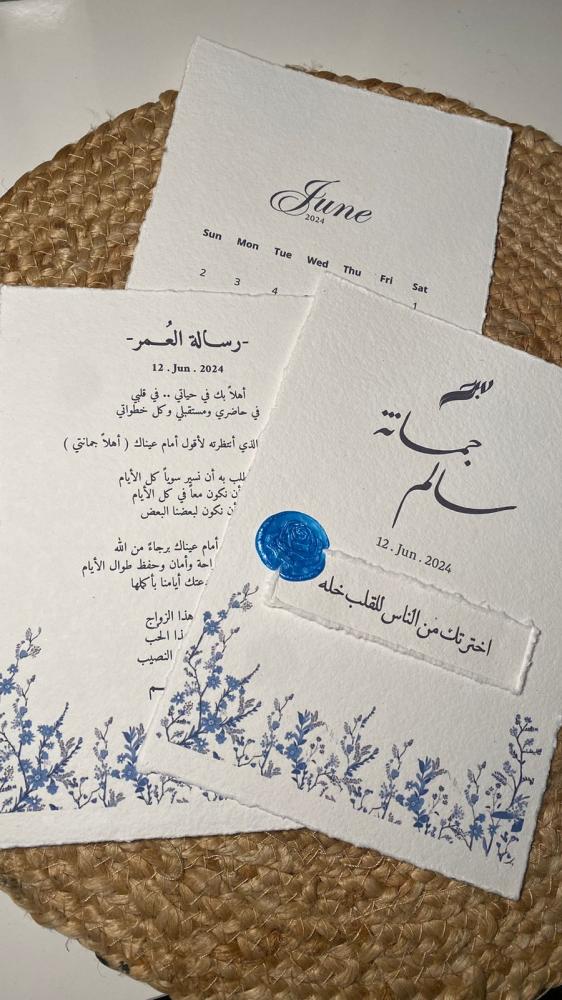 June
2024
Sun Mon Tue Wed Thu Fri Sat
1
2 3 4
-رسالة العُمر-
12 . Jun . 2024
أهلاً بك في حياتي .. في قلبي
في حاضري ومستقبلي وكل خطواتي
الذي أنتظرته لأقول أمام عيناك ( أهلاً جمانتي )
أن نسير سوياً كل الأيام
أن نكون معاً في كل الأيام
أن نكون لبعضنا البعض
أمام عيناك برجاءً من الله
وأمان وحفظ طوال الأيام
أيامنا بأكملها
هذا الزواج
الحب
النصيب
جمانة
سالم
12 . Jun . 2024
اخترتك من الناس للقلب خله